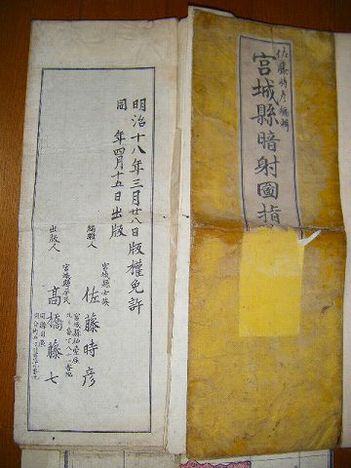 佐藤時彦編輯
宮城縣暗射圖指
明治十八年三月廿八日版權免許
同 年四月十五日出版
編輯人
宮城縣士族
佐藤時彦
出版人
宮城縣平民
高橋藤七